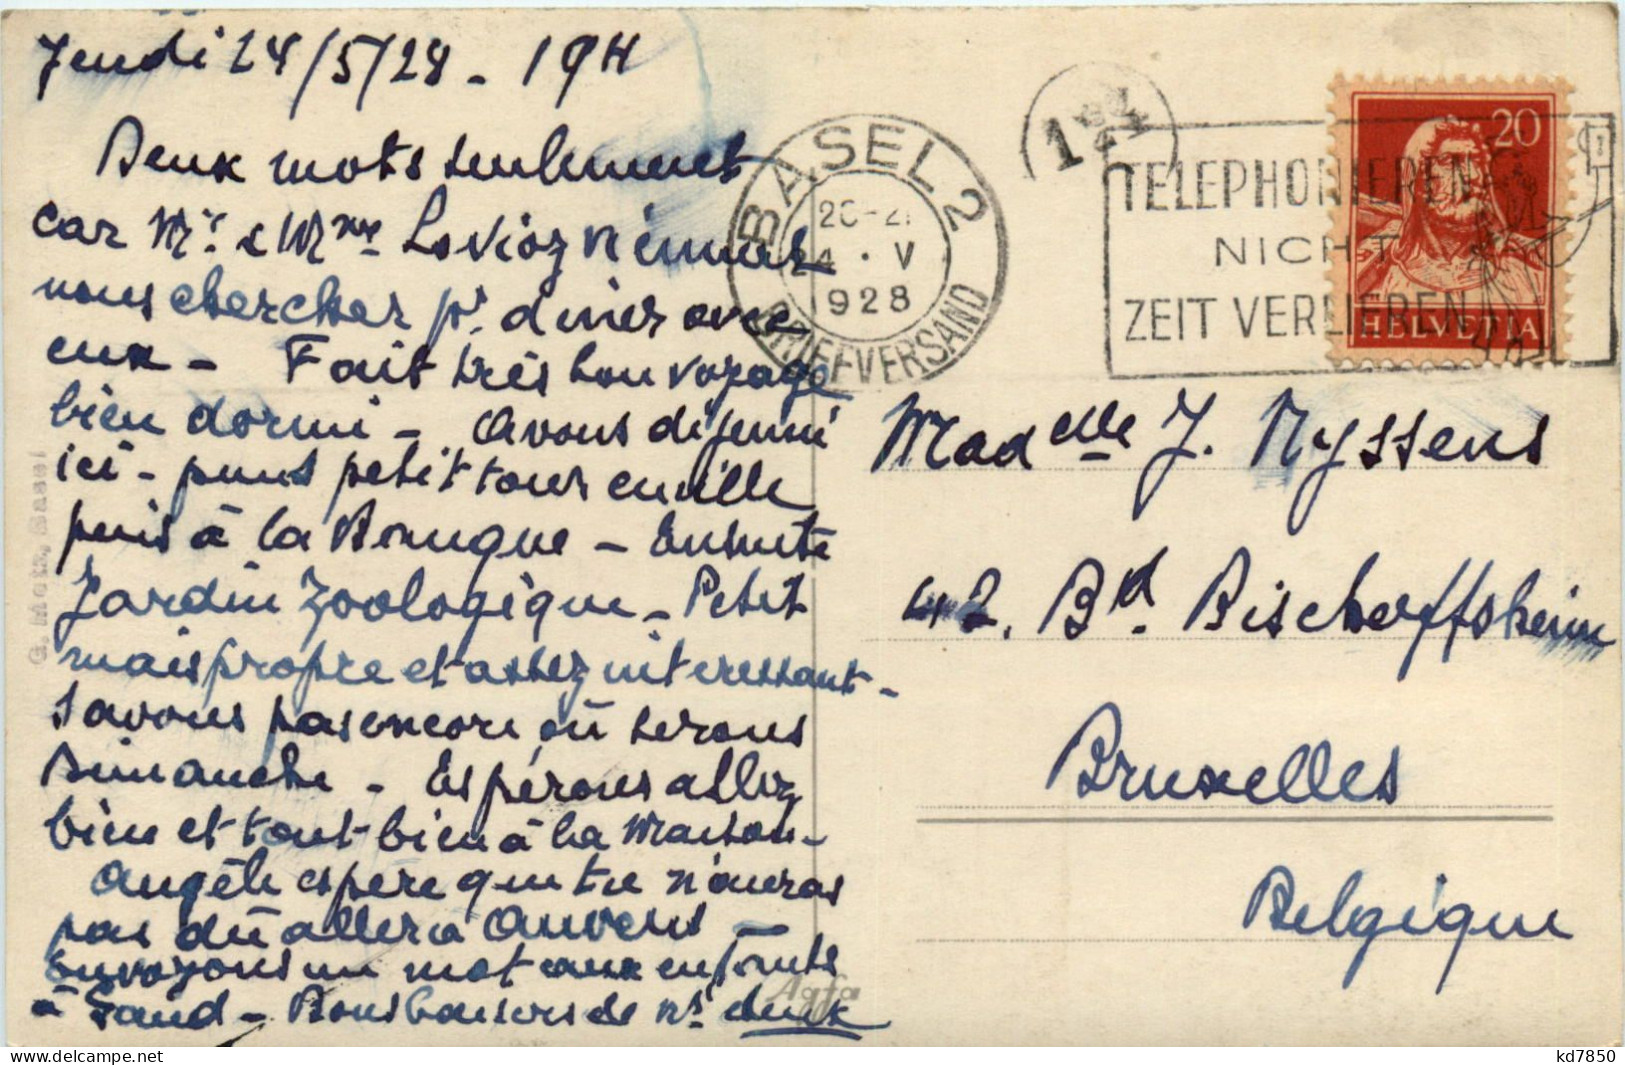 Jeudi 24/5/28 - 19H
Deux mots seulement
car Mr. & Mme Lavioz viennent
nous chercher pr. diner avec
eux - Fait très bon voyage
bien dormi - Avons déjeuné
ici - puis petit tour en ville
puis à la Banque - Ensuite
Jardin Zoologique - Petit
mais propre et assez intéressant -
Savons pas encore où serons
Dimanche - Espérons allez
bien et tout bien à la Maison -
Angèle espère que tu n'auras
pas dû aller à Anvers -
Envoyons un mot aux enfants
à Gand - Bons baisers de ns deux
BASEL 2
20-21
24 · V
1928
BRIEFVERSAND
TELEPHONIEREN
NICHT
ZEIT VERLIEREN
20
HELVETIA
Madelle J. Nyssens
42. Bd. Bischoffsheim
Bruxelles
Belgique
G. Metz, Basel
Agfa
kd7850